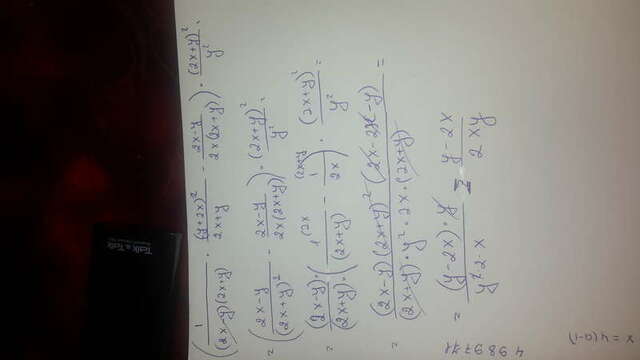 ( 1/((2x-y)(2x+y)) · (y+2x)²/(2x+y) - (2x-y)/(2x(2x+y)) ) · (2x+y)²/y² =
= ( (2x-y)/(2x+y)² - (2x-y)/(2x(2x+y)) ) · (2x+y)²/y² =
= (2x-y)/(2x+y) · ( 1(2x/(2x+y) - 1(2x+y/2x ) · (2x+y)²/y² =
= (2x-y)(2x+y)² (2x-2x-y)/((2x+y) · y² · 2x · (2x+y)) =
= (y-2x) · y/(y² · 2 · x) = (y-2x)/(2xy)
4989711
x = 4(a-1)
Testlk & Testlk